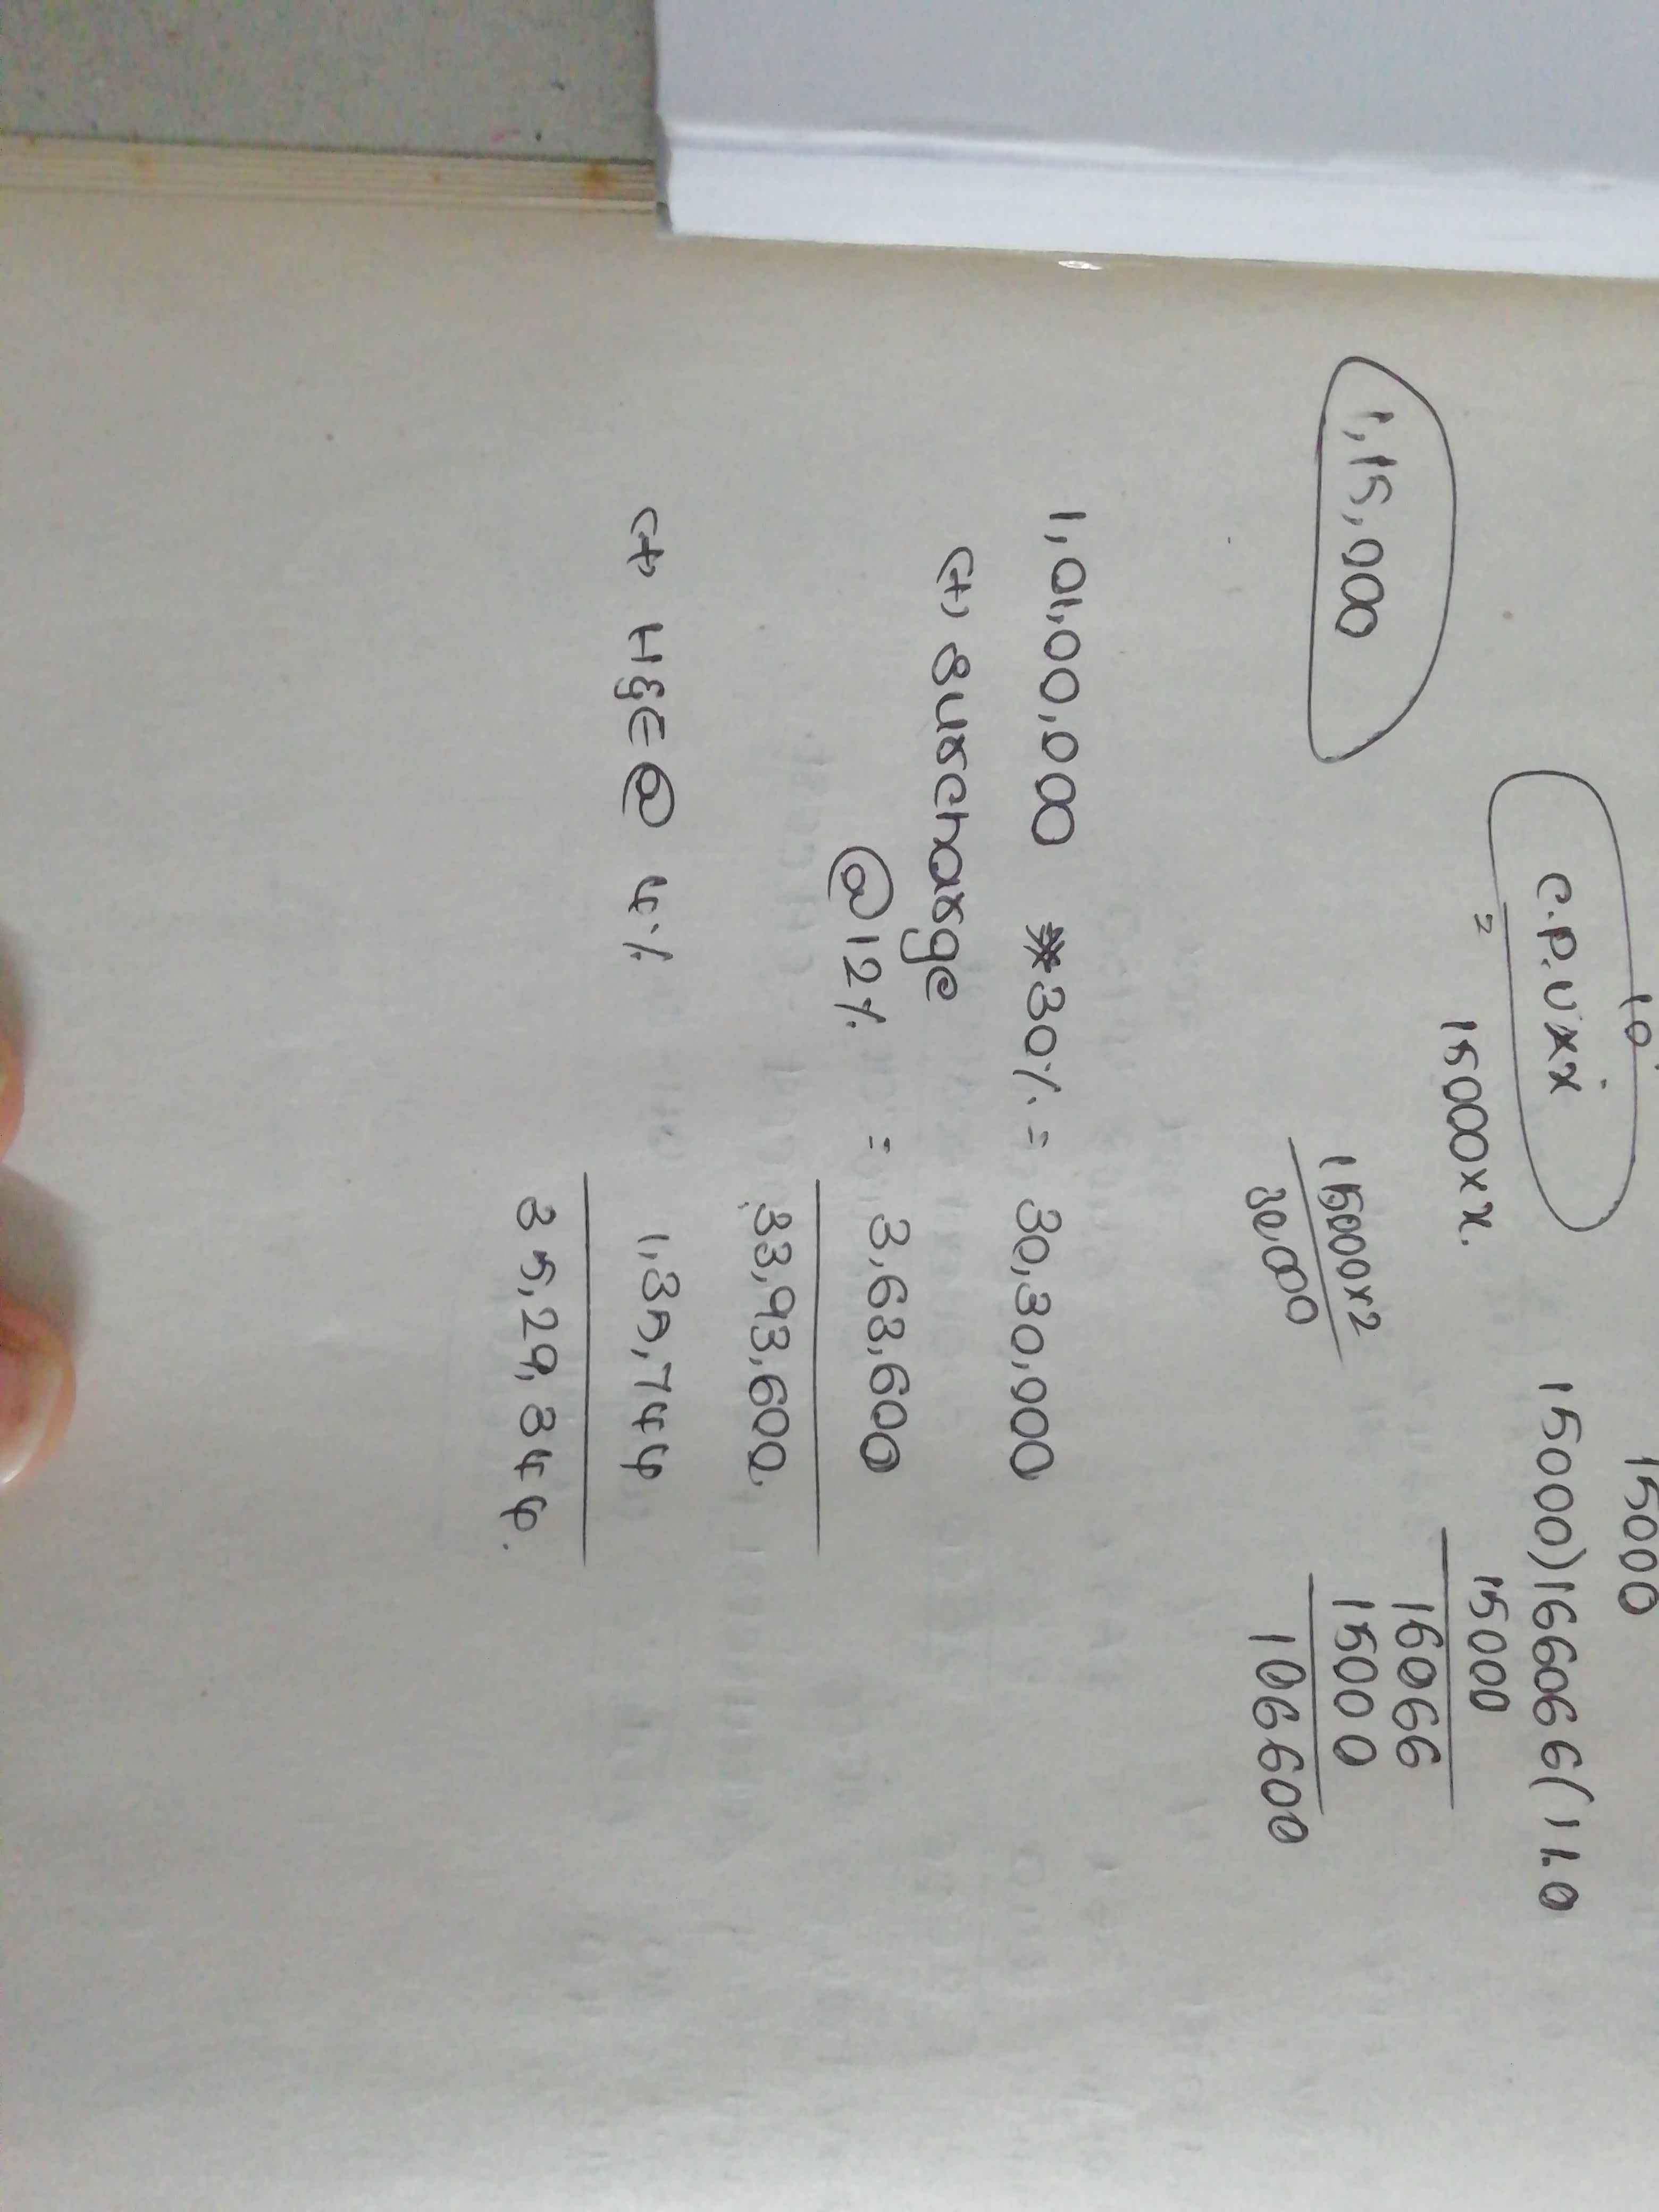 10
15000
C.P.U x x
15000)166066(11.0
15000
= 15000 x x.
16066
1,15,000
15000x2
15000
30,000
106600
1,01,00,000 30% = 30,30,000
(+) Surcharge
@12% = 3,63,600
33,93,600
(+) H&E@ 4% 1,35,744
35,29,344.